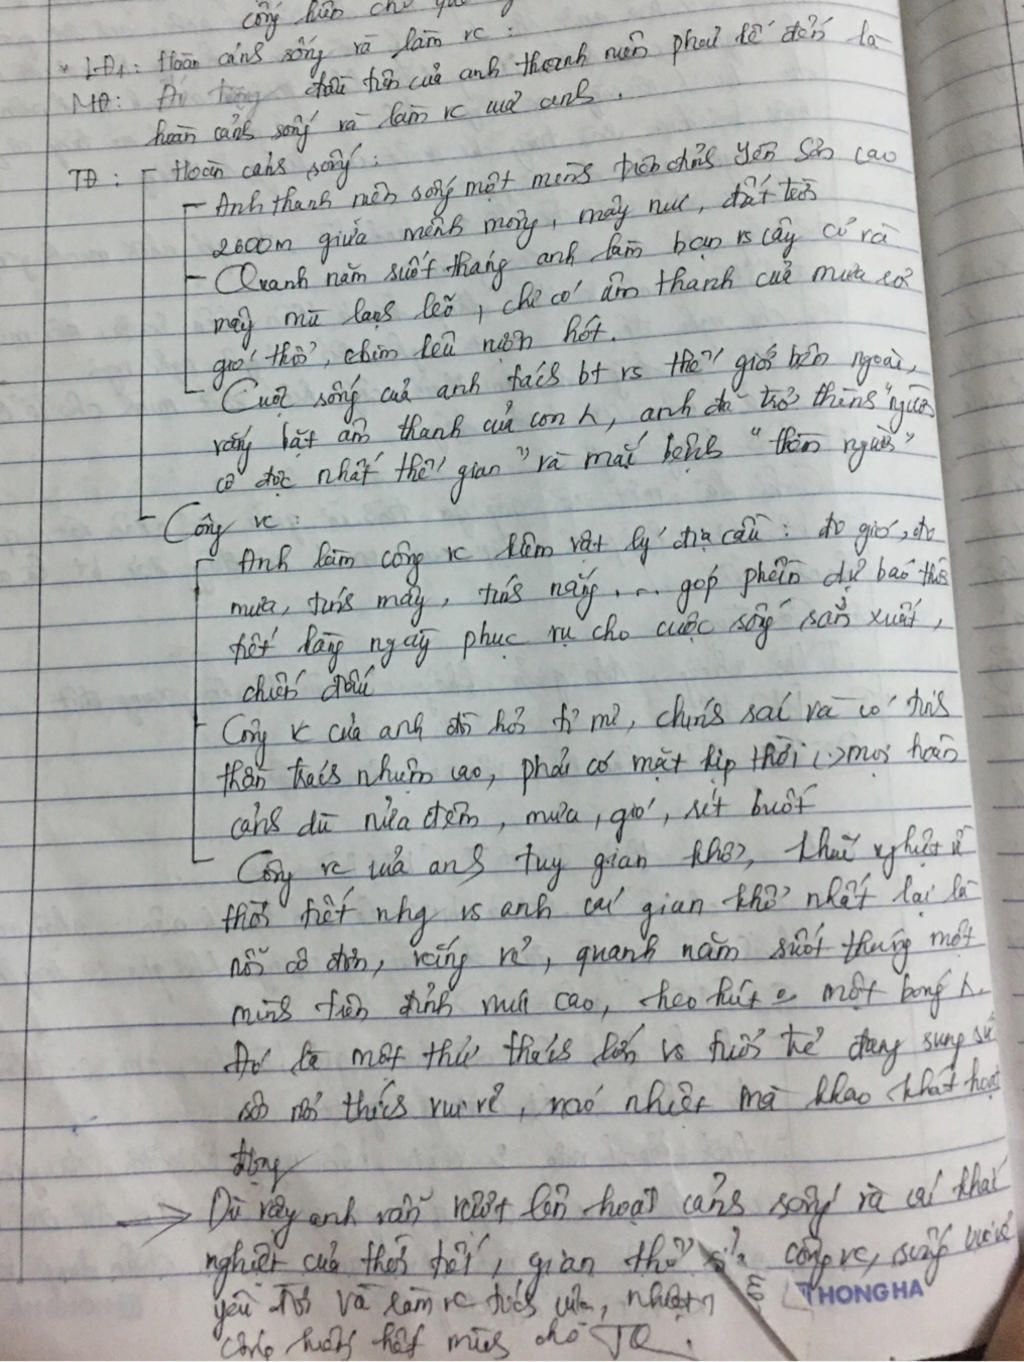 cống hiến cho
LĐ1: Hoàn cảnh sống và làm vc:
MĐ: đầu tiên của anh thanh niên phải kể đến là
hoàn cảnh sống và làm vc của anh.
TĐ: Hoàn cảnh sống:
- Anh thanh niên sống một mình trên đỉnh Yên Sơn cao
2600m giữa mênh mông, mây núi, đất trời
- Quanh năm suốt tháng anh làm bạn vs cây cỏ và
mây mù lạnh lẽo, chỉ có âm thanh của mưa rơi
gió thổi, chim kêu hót.
- Cuộc sống của anh tách bt vs thế giới bên ngoài,
vắng bặt âm thanh của con n, anh đã trở thành "người
cô độc nhất thế gian" và mắc bệnh "thèm người"
- Công vc:
- Anh làm công vc kiêm vật lý địa cầu: đo gió, đo
mưa, tính mây, tính nắng, ... góp phần dự báo thời
tiết hàng ngày phục vụ cho cuộc sống sản xuất,
chiến đấu
- Công vc của anh đòi hỏi tỉ mỉ, chính xác và có tinh
thần trách nhiệm cao, phải có mặt kịp thời mọi hoàn
cảnh dù nửa đêm, mưa, gió, rét buốt
- Công vc của anh tuy gian khổ, khắc nghiệt về
thời tiết nhg vs anh cái gian khổ nhất lại là
nỗi cô đơn, vắng vẻ, quanh năm suốt tháng một
mình trên đỉnh núi cao, heo hút một bóng n.
Đó là một thử thách lớn vs tuổi trẻ đang sung sức
thích vui vẻ, náo nhiệt mà khao khát hoạt
động
→ Dù vậy anh vẫn vượt lên hoàn cảnh sống và cái khắc
nghiệt của thời tiết, gian khổ công vc, sống
yêu đời và làm vc tích cực,
cống hiến hết mình cho TQ.
HONGHA